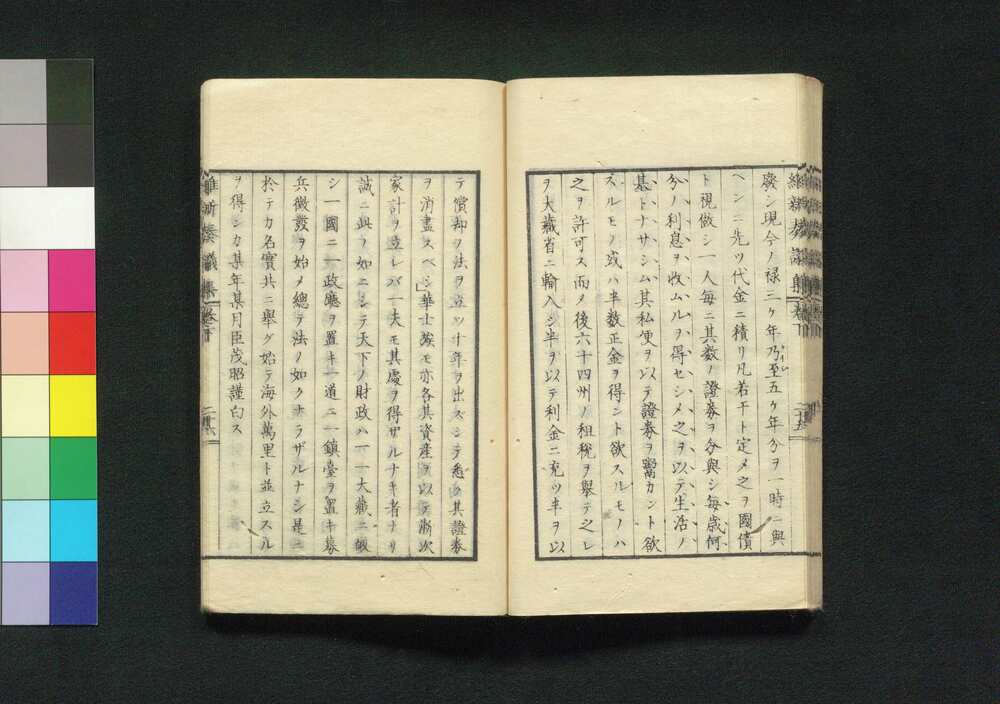 廢シ現今ノ禄三ケ年乃至五ケ年分ヲ一時ニ與
ヘンニ先ツ代金ニ積リ凡若干ト定メ之ヲ國債
ト視做シ一人毎ニ其数ノ證券ヲ分與シ毎歳何
分ノ利息ヲ收ムルヲ得セシメ之ヲ以テ生活ノ
基トナサシム其私便ヲ以テ證券ヲ鬻カント欲
スルモノ或ハ半数正金ヲ得ント欲スルモノハ
之ヲ許可ス而メ後六十四州ノ租税ヲ擧テ之レ
ヲ大蔵省ニ輸入シ半ヲ以テ利金ニ充ツ半ヲ以
テ償却ヲ法ヲ立ツ十年ヲ出スシテ悉ク其證券
ヲ消盡スベシ」華士族モ亦各其資産ヲ以テ漸次
家計ヲ立レバ一夫モ其處ヲ得ザルナキ者ナリ
誠ニ此ノ如ニシテ天下ノ財政ハ一一大蔵ニ皈
シ一國ニ一政廳ヲ置キ一道ニ一鎮臺ヲ置キ募
兵徴發ヲ始メ總テ法ノ如クナラザルナシ是ニ
於テカ名實共ニ擧グ始テ海外萬里ト並立スル
ヲ得シカ某年某月臣茂昭謹白ス
維新奏議集 巻下 二十六